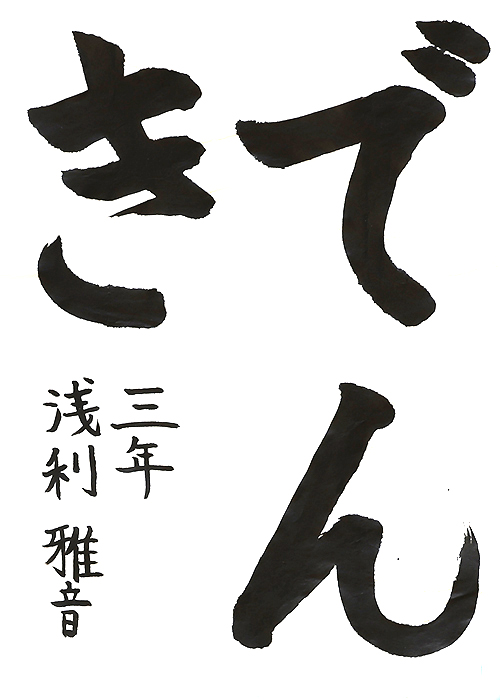 でん
き
三年
浅利 雅音